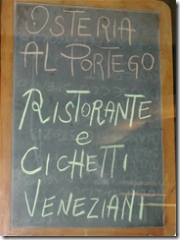 OSTERIA
AL PORTEGO
RISTORANTE
e
CICHETTI
VENEZIANI